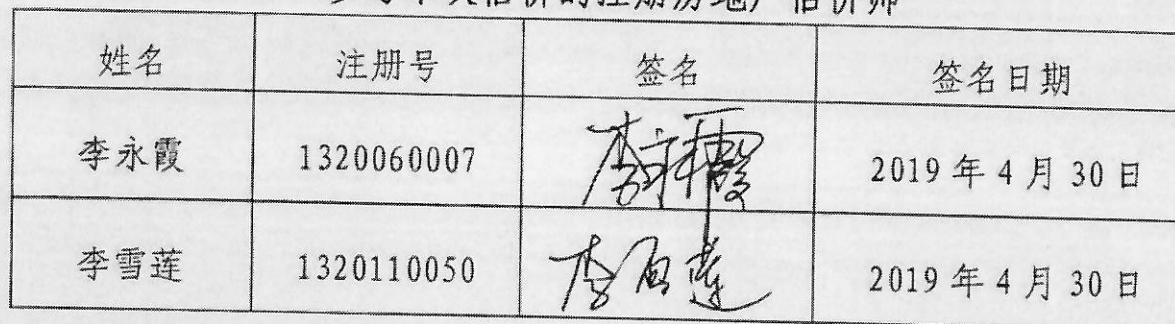 参与本次估价的注册房地产估价师
姓名 注册号 签名 签名日期
李永霞 1320060007 李永霞 2019 年 4 月 30 日
李雪莲 1320110050 李雪莲 2019 年 4 月 30 日